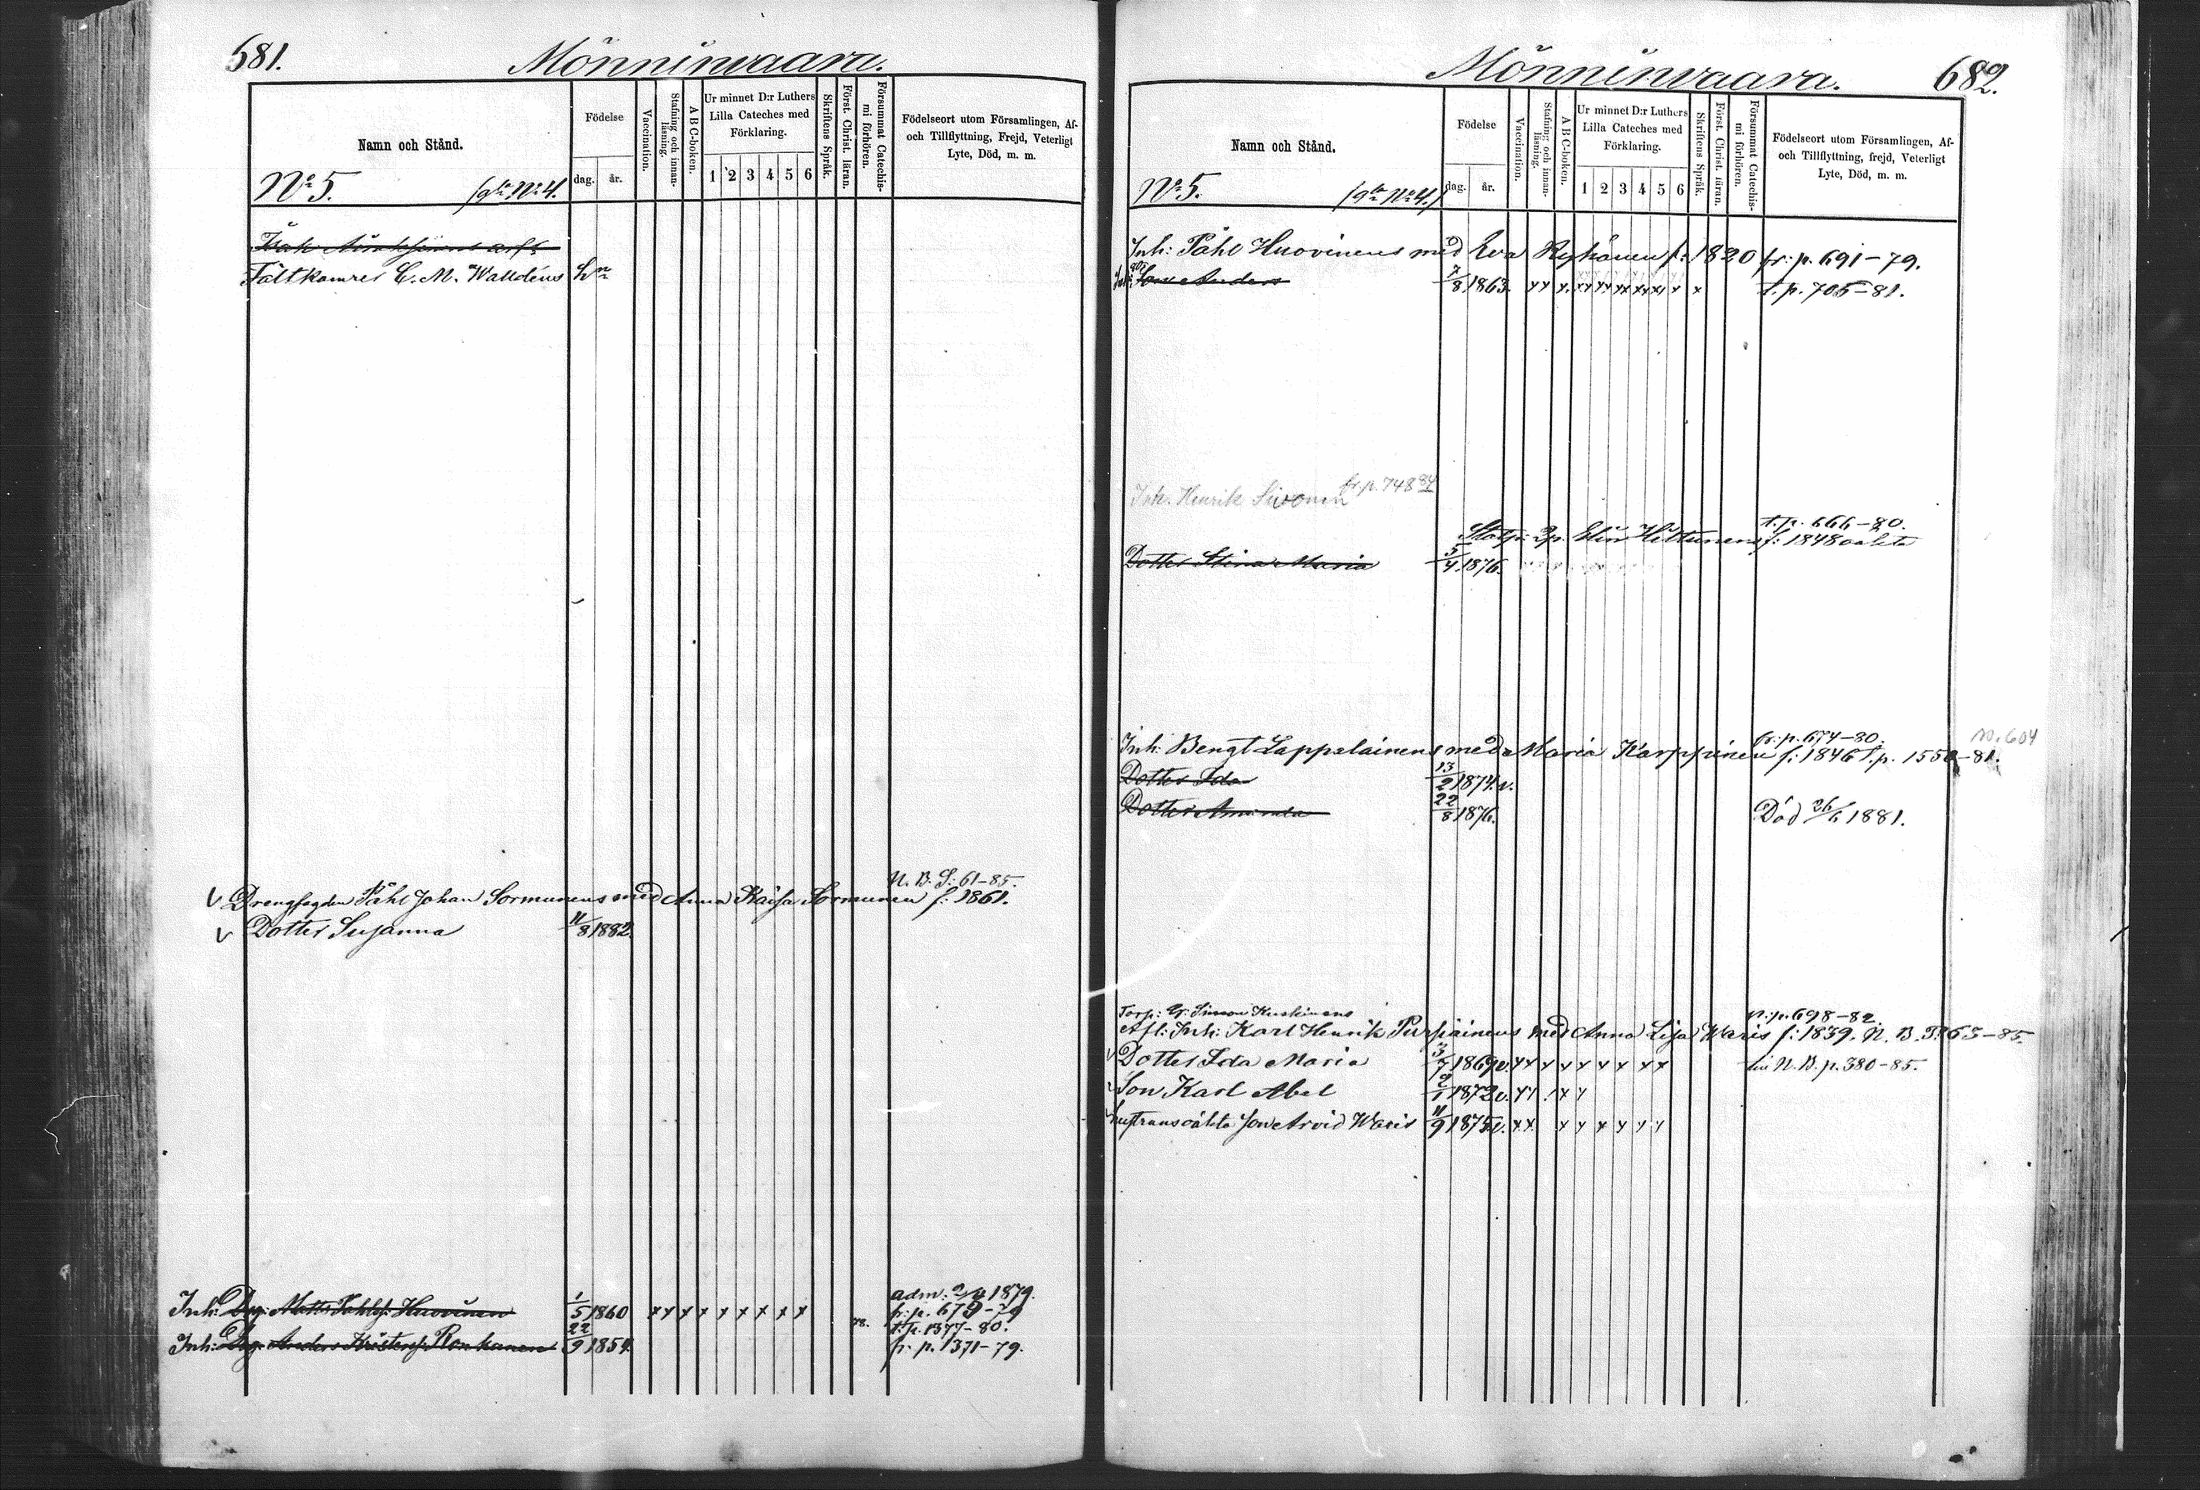 681.
Mönninvaara.
Namn och Stånd.
Födelse
dag.
år.
Vaccination.
Stafning och innanläsning.
A B C-boken.
Ur minnet D:r Luthers
Lilla Cateches med
Förklaring.
1 2 3 4 5 6
Skriftens Språk.
Först. Christ. läran.
Försummat Catechismi förhören.
Födelseort utom Församlingen, Af-
och Tillflyttning, Frejd, Veterligt
Lyte, Död, m. m.
No 5. No 4.
Fältkamrer C. M. Walldéns
N. B. S. 61-85.
v Drengfogden Påhl Johan Sormunens med Anna Kaisa Sormunen f: 1861.
v Dotter Susanna 11/8 1882.
adm: 1879.
Inh: Drg: Matts Påhlsf: Huovinen 1/5 1860 x x x x x x x x x fr: p. 679-79
78. t. p. 1377-80.
Inh: Drg: Anders Kristersf: Ronkanen 22/9 1854. fr: p. 1371-79.
Mönninvaara.
682.
Namn och Stånd.
Födelse
dag.
år.
Vaccination.
Stafning och innanläsning.
A B C-boken.
Ur minnet D:r Luthers
Lilla Cateches med
Förklaring.
1 2 3 4 5 6
Skriftens Språk.
Först. Christ. läran.
Försummat Catechismi förhören.
Födelseort utom Församlingen, Af-
och Tillflyttning, frejd, Veterligt
Lyte, Död, m. m.
No 5. No 4.
Inh: Påhl Huovinens med Eva Ryhänen f: 1820 fr: p. 691-79.
Son Anders 7/8 1863. t. p. 705-81.
Inh. Henrik Sivonen fr. p. 748
t. p. 666-80.
Hiltunens f: 1848 oäkta
Dotter Stina Maria 5/4 1876.
fr: p. 674-80.
Inh: Bengt Lappalainens med Maria Karppinen f: 1846 t. p. 1550-81.
Dotter Ida 13/2 1874. v.
Dotter Amanda 22/8 1876. Död 26/6 1881.
Torp: Simon Kuskinens p. 698-82.
Afl: Inh: Karl Henrik Pursiainens med Anna Lisa Waris f: 1839. N. B. 363-85.
v Dotter Ida Maria 1869 v. N. B. p. 380-85.
Son Karl Abel 2/1 1872 v.
Hustruns oäkta son Arvid Waris 11/9 1875 v.